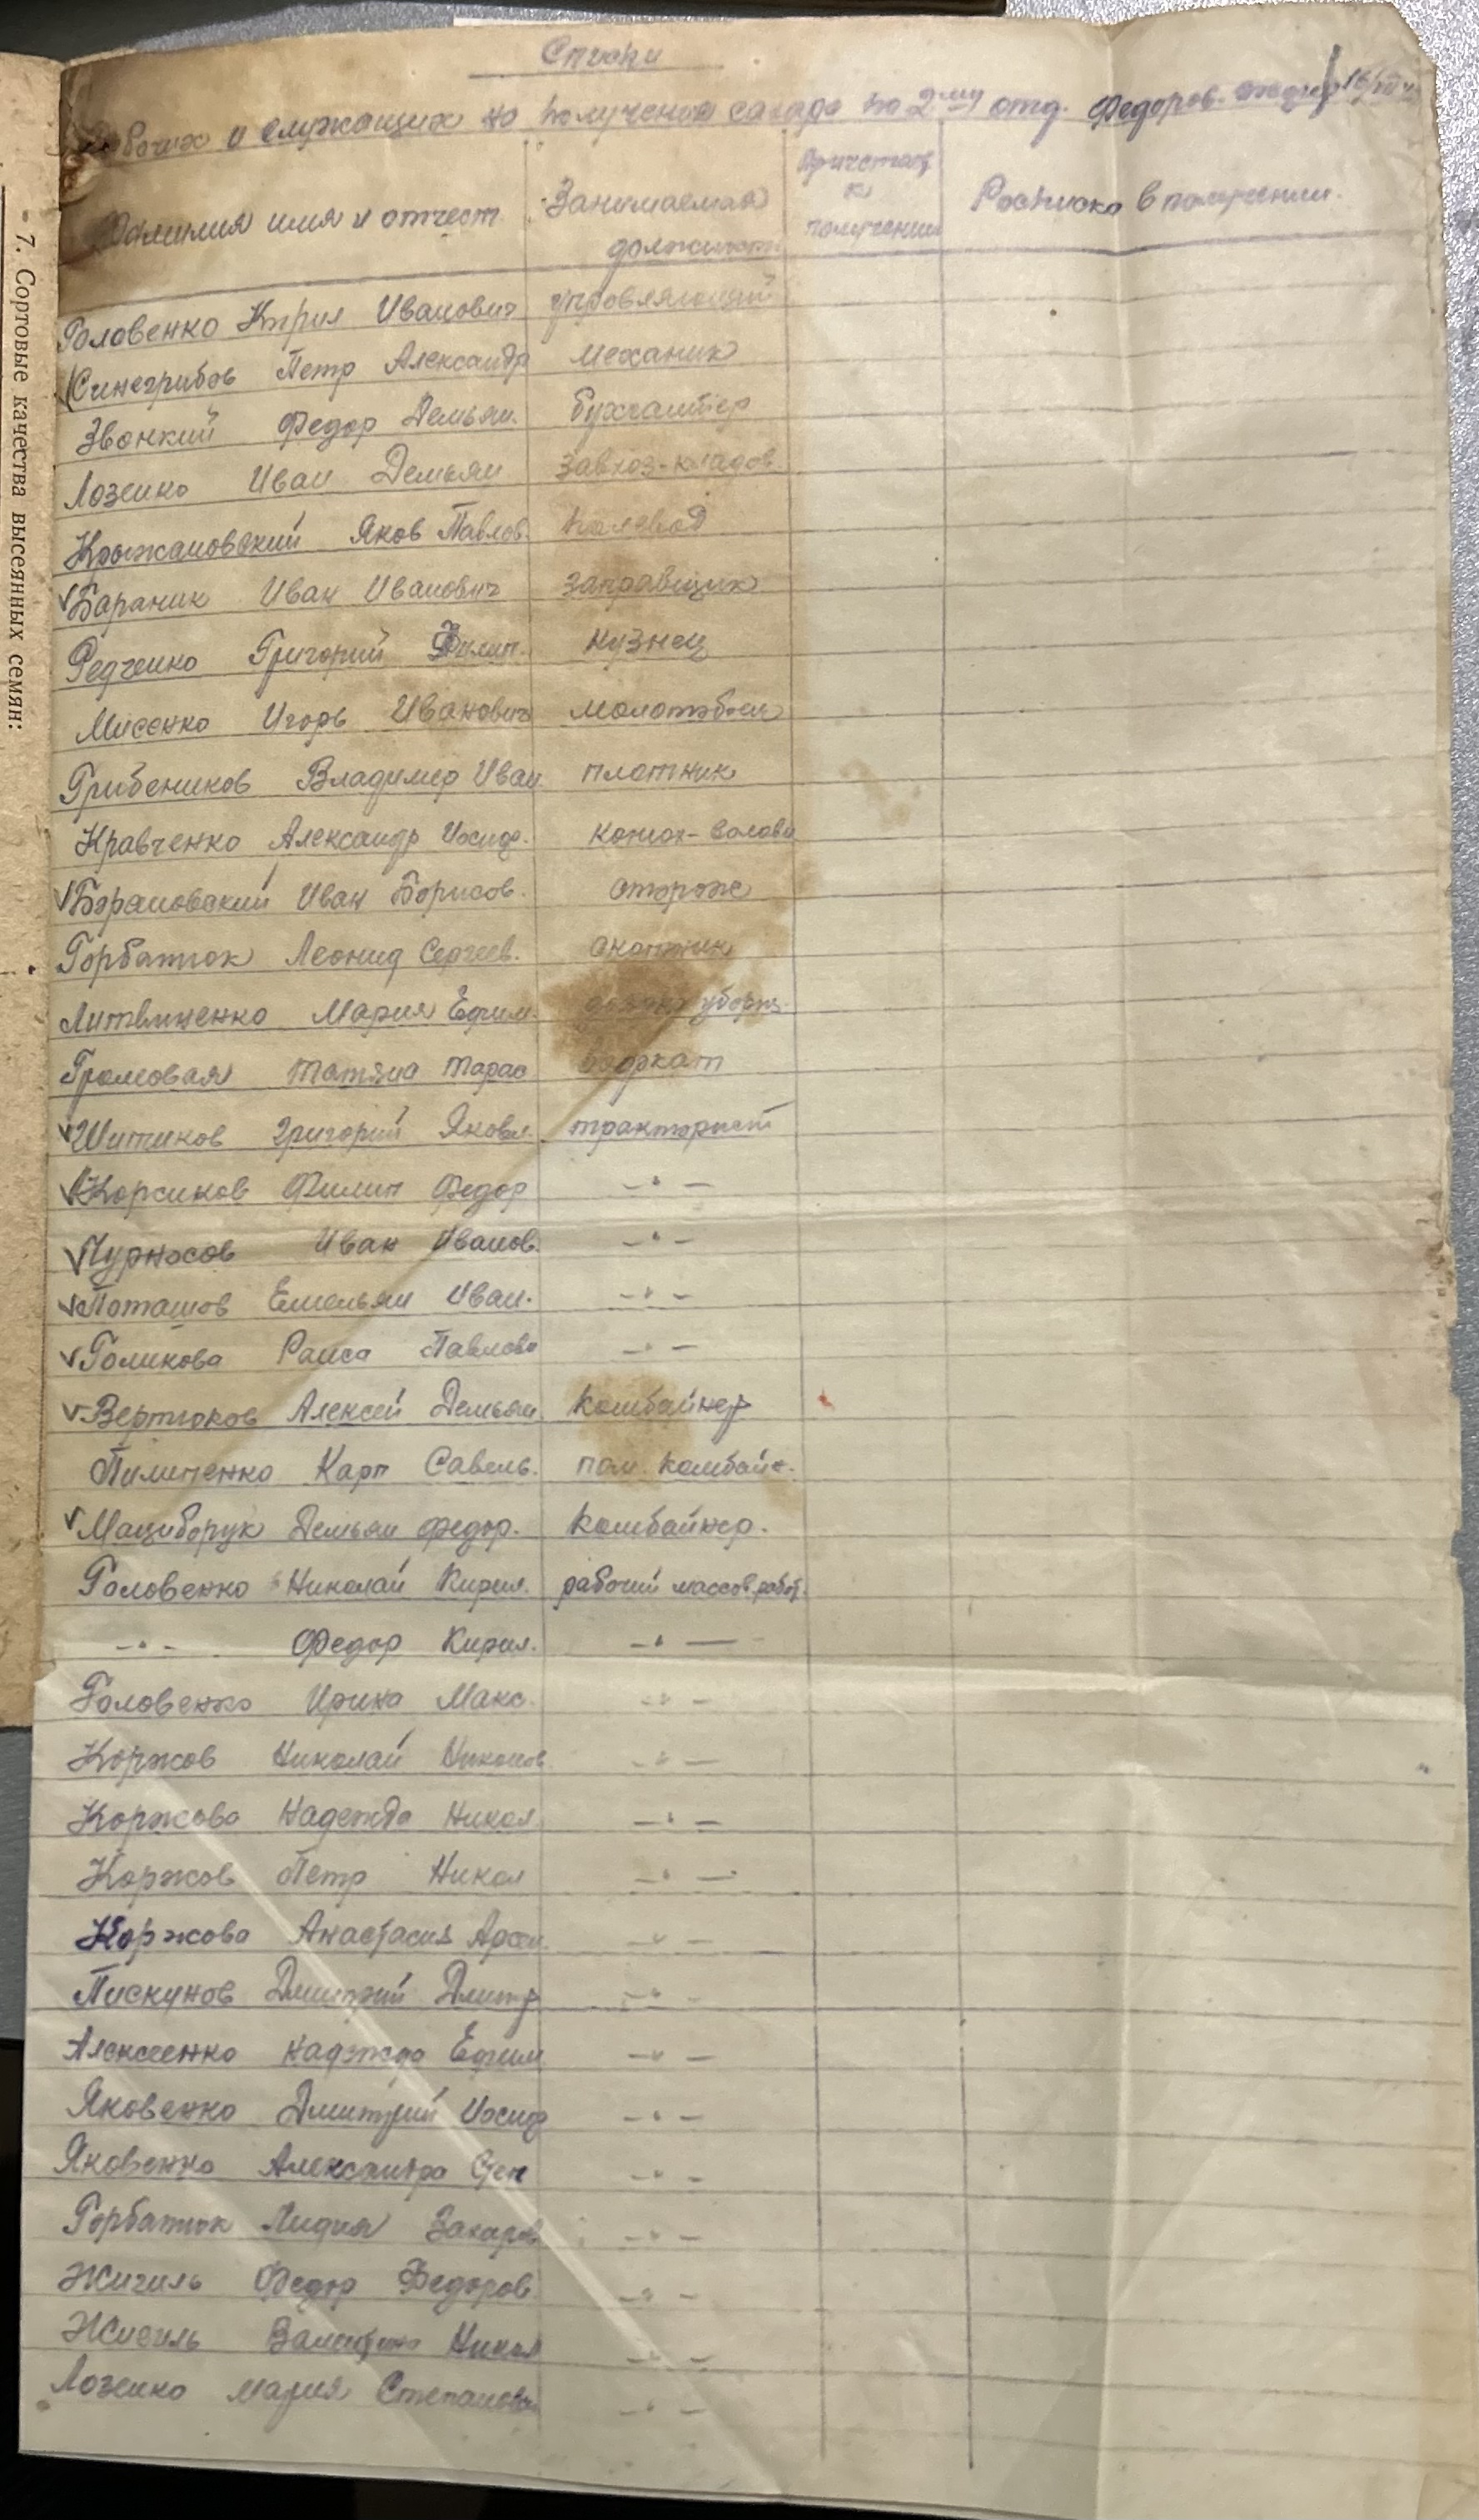 Списки
рабочих и служащих на получение сахара по 2му отд. Федоров.
Фамилия имя и отчест
Занимаемая
должност.
Причетает
к
получении
Росписка в получении.
Головенко Кирил Иванович управляющий
Синегрибов Петр Александр механик
Звонкий Федор Демьян. бухгалтер
Лозенко Иван Демьян завхоз-кладов.
Крыжановский Яков Павлов. полевод
Бараник Иван Иванович заправщик
Редченко Григорий Филип. кузнец
Мисенко Игорь Иванович молотобоец
Грибеников Владимир Иван. плотник
Кравченко Александр Иосиф. конюх-
Барановский Иван Борисов. сторож
Горбатюк Леонид Сергеев. скотник
Литвиненко Мария Ефим. уборщ.
Громовая Татяна Тарас
Шитиков Григорий Яковл. тракторист
Корсиков Филип Федор -"-
Чурносов Иван Иванов. -"-
Поташов Емельян Иван. -"-
Голикова Раиса Павлова -"-
Вертюков Алексей Демьян. комбайнер
Пилипенко Карп Савель. пом. комбайн.
Мациборук Демьян Федор. комбайнер.
Головенко Николай Кирил. рабочий массов. работ.
-"- Федор Кирил. -"-
Головенко Ирина Макс. -"-
Коржов Николай Никонов -"-
Коржова Надежда Никол -"-
Коржов Петр Никол -"-
Коржова Анастасия Арсен. -"-
Пискунов Дмитрий Дмитр -"-
Алексеенко Надежда Ефим -"-
Яковенко Дмитрий Иосиф -"-
Яковенко Александра Степ -"-
Горбатюк Лидия Захаров -"-
Жигиль Федор Федоров. -"-
Жигиль Валентина Никол -"-
Лозенко Мария Степанова -"-
7. Сортовые качества высеянных семян: